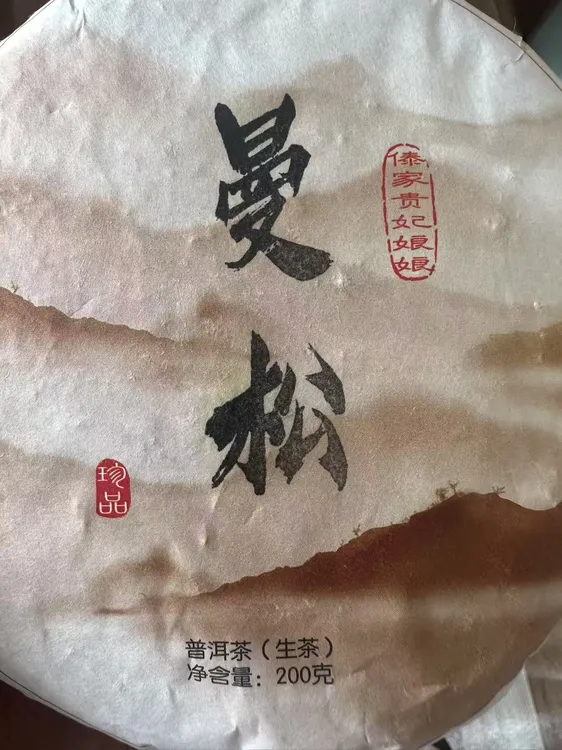 曼松
傣家贵妃娘娘
珍品
普洱茶（生茶）
净含量：200克